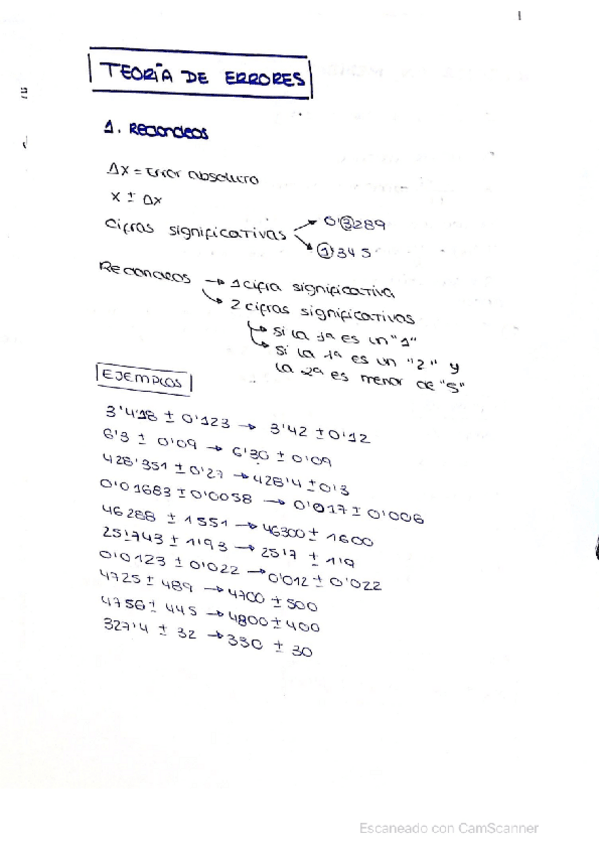 1
TEORÍA DE ERRORES
1. Redondeos
Δx = Error absoluto
x ± Δx
Cifras significativas → 0'3289
→ 1'345
Redondeos → 1 cifra significativa
→ 2 cifras significativas
→ si la 1ª es un "1"
→ si la 1ª es un "2" y
la 2ª es menor de "5"
EJEMPLOS
3'418 ± 0'123 → 3'42 ± 0'12
6'3 ± 0'09 → 6'30 ± 0'09
428'351 ± 0'27 → 428'4 ± 0'3
0'01683 ± 0'0058 → 0'017 ± 0'006
46288 ± 1551 → 46300 ± 1600
25'743 ± 1'93 → 25'7 ± 1'9
0'0123 ± 0'022 → 0'012 ± 0'022
4725 ± 489 → 4700 ± 500
4756 ± 445 → 4800 ± 400
327'4 ± 32 → 330 ± 30
Escaneado con CamScanner